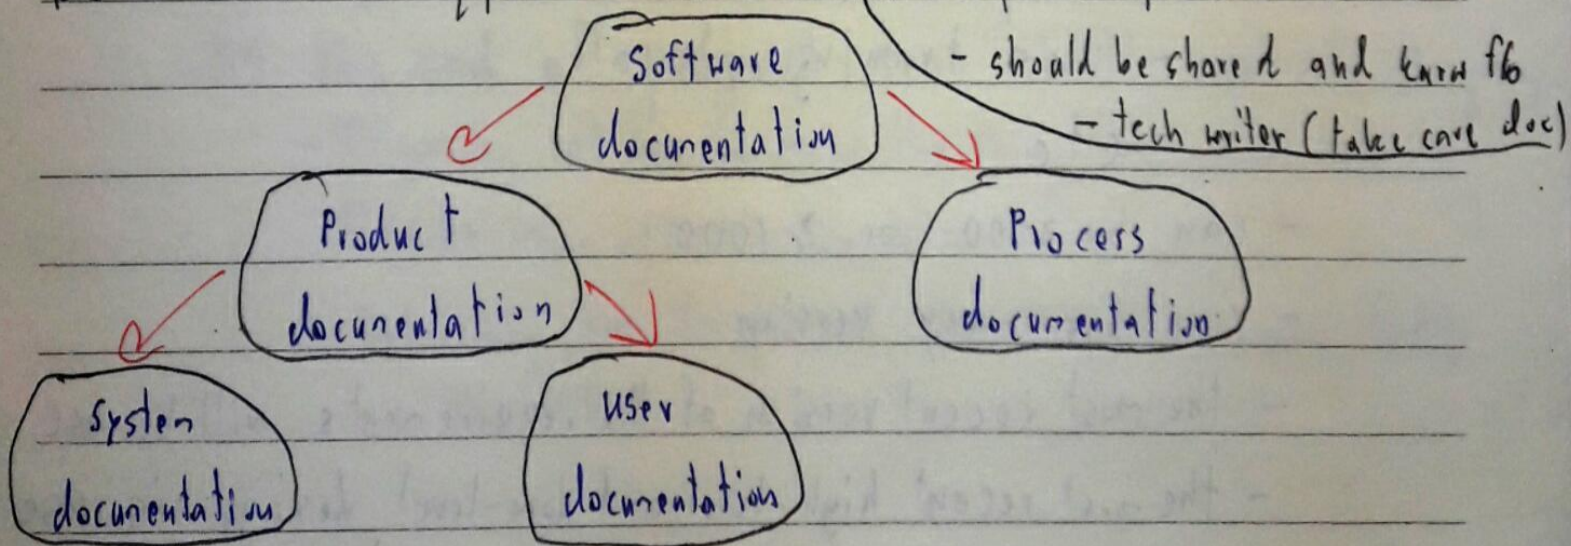 Software
documentation
- should be shared and know
- tech writer (take care doc)
Product
documentation
Process
documentation
System
documentation
User
documentation